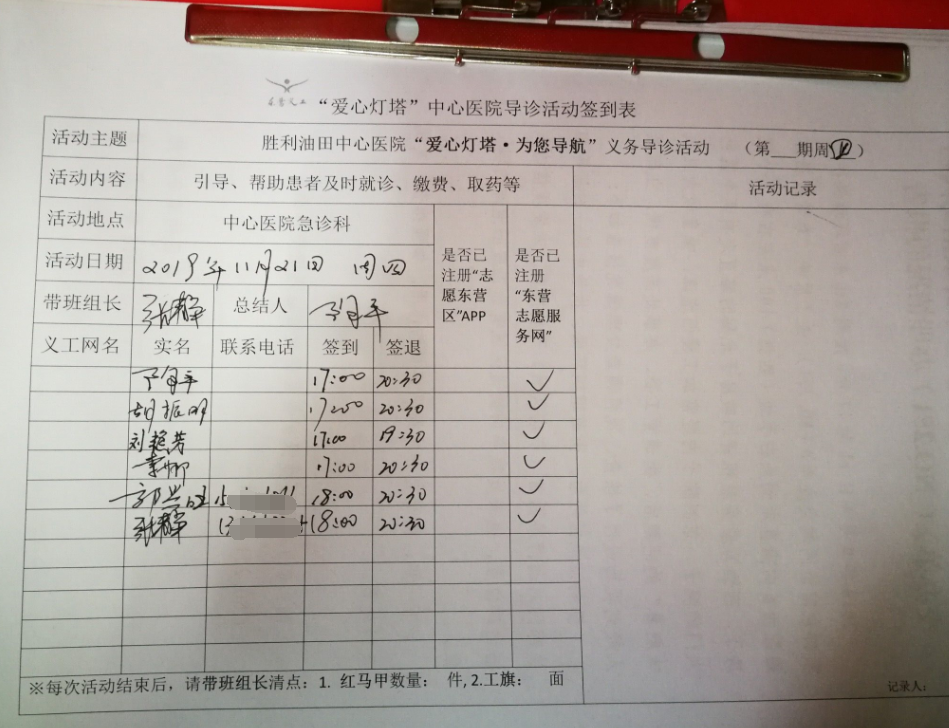 东营义工
“爱心灯塔”中心医院导诊活动签到表
活动主题 胜利油田中心医院“爱心灯塔·为您导航”义务导诊活动 （第___期周四）
活动内容 引导、帮助患者及时就诊、缴费、取药等 活动记录
活动地点 中心医院急诊科
是否已注册“志愿东营区”APP
是否已注册“东营志愿服务网”
活动日期 2019年11月21日 周四
带班组长 张静 总结人
义工网名 实名 联系电话 签到 签退
17:00 20:30 ✓
胡振明 17:00 20:30 ✓
刘艳芳 17:00 19:30 ✓
17:00 20:30 ✓
18:00 20:30 ✓
张静 18:00 20:30 ✓
※每次活动结束后，请带班组长清点：1. 红马甲数量： 件,2.工旗： 面
记录人：